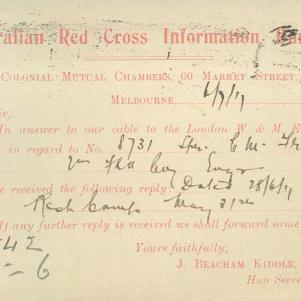 ralian Red Cross Information Bu
Colonial Mutual Chambers, 60 Market Street,
Melbourne, 6/7/17
ir,
In answer to our cable to the London W. & M. E
in regard to No. 8731 C. M.
2nd Fld Coy Engr
e received the following reply: Dated 28/6/17
May 31st
If any further reply is received we shall forward some
Yours faithfully,
J. Beacham Kiddle,
Hon Secre